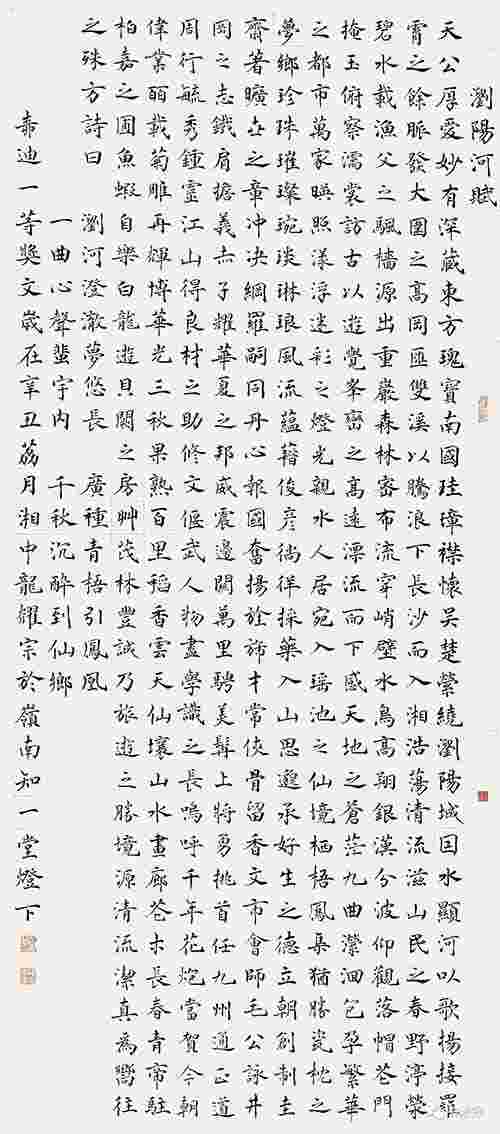 瀏陽河賦
天公厚愛妙有深藏東方瑰寶南國珪璋襟懷吴楚縈繞瀏陽城因水顯河以歌揚接羅
霄之餘脈發大圍之高岡匯雙溪以騰浪下長沙而入湘浩蕩清流滋山民之春野渟滎
碧水載漁父之颿檣源出重巖森林密布流穿峭壁水鳥高翔銀漢分波仰觀落帽苍門
掩玉俯察濡裳訪古以遊覺峯巒之高遠漂流而下感天地之蒼茫九曲瀠洄包孕繁華
之都市萬家暎照漾浮迷彩之燈光親水人居宛入瑶池之仙境栖梧鳳集猶勝瓷枕之
夢鄉珍珠璀璨琬琰琳琅風流蘊藉俊彦徜徉採藥入山思邈承好生之德立朝創制圭
齋著曠世之章冲决綱羅嗣同丹心報國奮揚於斾才常俠骨留香文市會師毛公詠井
岡之志鐵肩擔義赤子耀華夏之邦威震邊關萬里騁美髯上將勇挑首任九州通正道
周行毓秀鍾靈江山得良材之助修文偃武人物盡學識之長嗚呼千年花炮當賀今朝
偉業酃載菊雕再輝博華光三秋果熟百里稻香雲天仙壤山水畫廊苍木長春青帝駐
柏嘉之圃魚蝦自樂白龍遊貝闕之房艸茂林豐誠乃旅遊之勝境源清流潔真為嚮往
之殊方詩曰
瀏河澄澈夢悠長 廣種青梧引鳳凰
一曲心聲蜚宇内 千秋沉醉到仙鄉
一等奬文歲在辛丑荔月湘中龍耀宗於嶺南知一堂燈下